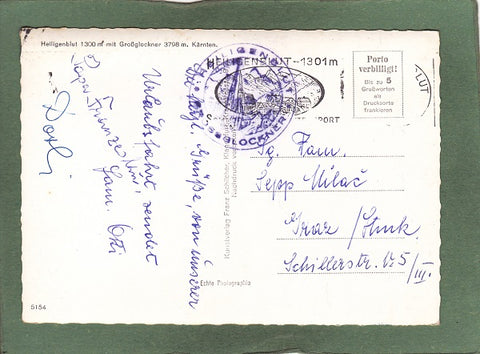 Heiligenblut 1300 m mit Großglockner 3798 m. Kärnten.
HEILIGENBLUT - 1301 m
HEILIGENBLUT
GLOCKNER
PORT
LUT
Porto
verbilligt!
Bis zu 5
Grußworten
als
Drucksorte
frankieren
Kunstverlag Franz Schilcher, Klagenfurt
Nachdruck
Echte Photographie
5154
Die herzl. Grüße von unserer
Urlaubsfahrt sendet
Fam.
Dorli
Fam.
Sepp Milač
Graz / Stmk.
Schillerstr. 25 / III.